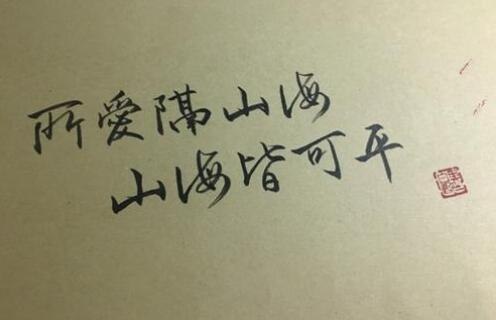 所愛隔山海
山海皆可平